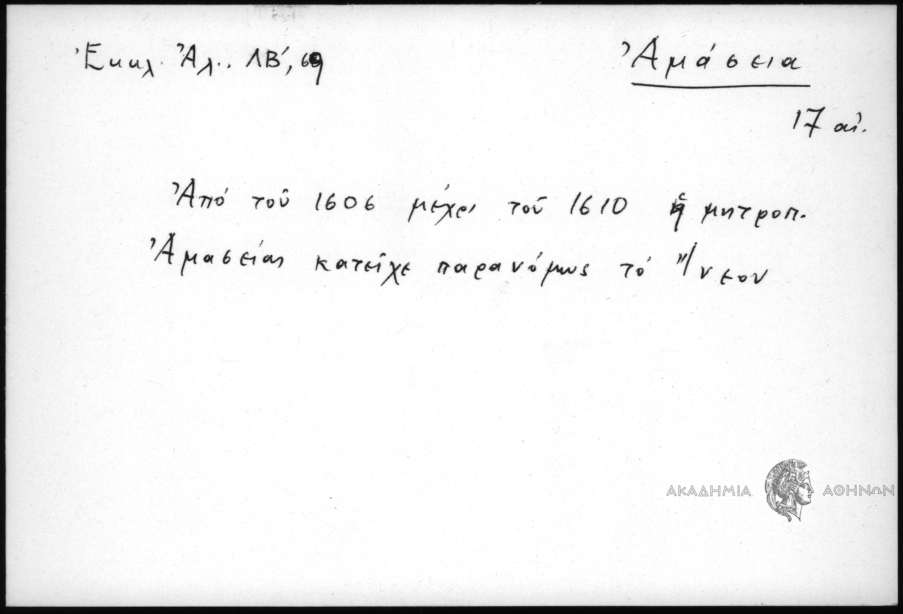 Ἐκκλ. Ἀλ., ΛΒ', 69
Ἀμάσεια
17 αἰ.
Ἀπό τοῦ 1606 μέχρι τοῦ 1610 ἡ μητροπ.
Ἀμασείας κατεῖχε παρανόμως τό Ἴνεον
ΑΚΑΔΗΜΙΑ ΑΘΗΝΩΝ